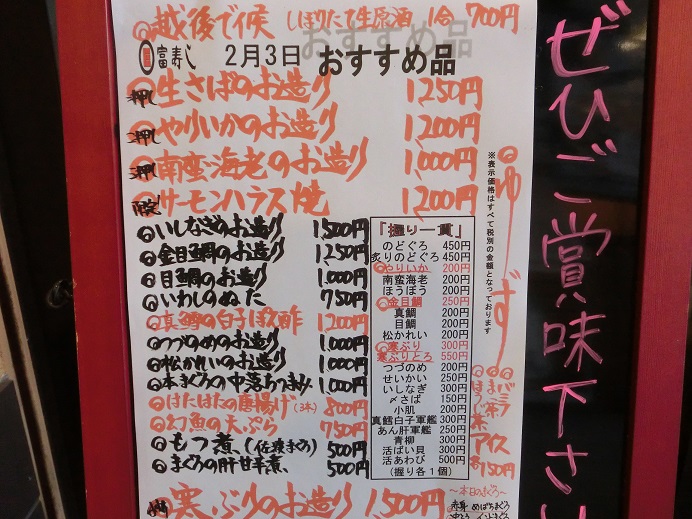 越後で候 しぼりたて生原酒 1合 700円
富寿し 2月3日 おすすめ品
一押し 生さばのお造り 1,250円
二押し やりいかのお造り 1,200円
三押し 南蛮海老のお造り 1,000円
サーモンハラス焼 1,200円
いしなぎのお造り 1,500円
金目鯛のお造り 1,250円
目鯛のお造り 1,000円
いわしのぬた 750円
真鱈の白子ぽん酢 1,200円
つづのめのお造り 1,000円
松かれいのお造り 1,000円
本まぐろの中落ちつまみ 1,000円
はたはたの唐揚げ(3本) 800円
幻魚の天ぷら 750円
もつ煮(佐渡まぐろ) 500円
まぐろの肝甘辛煮 500円
寒ぶりのお造り 1,500円
「握り一貫」
のどぐろ 450円
炙りのどぐろ 450円
やりいか 200円
南蛮海老 200円
ほうぼう 200円
金目鯛 250円
真鯛 200円
目鯛 200円
松かれい 200円
寒ぶり 300円
寒ぶりとろ 550円
つづのめ 200円
せいかい 250円
いしなぎ 300円
〆さば 150円
小肌 200円
真鱈白子軍艦 300円
あん肝軍艦 250円
青柳 300円
活ばい貝 300円
活あわび 500円
(握り各1個)
※表示価格はすべて税別の金額となっております
ゆず
ほうじ茶
アイス
各150円
～本日のまぐろ～
赤身 めばちまぐろ
ぜひご賞味下さい